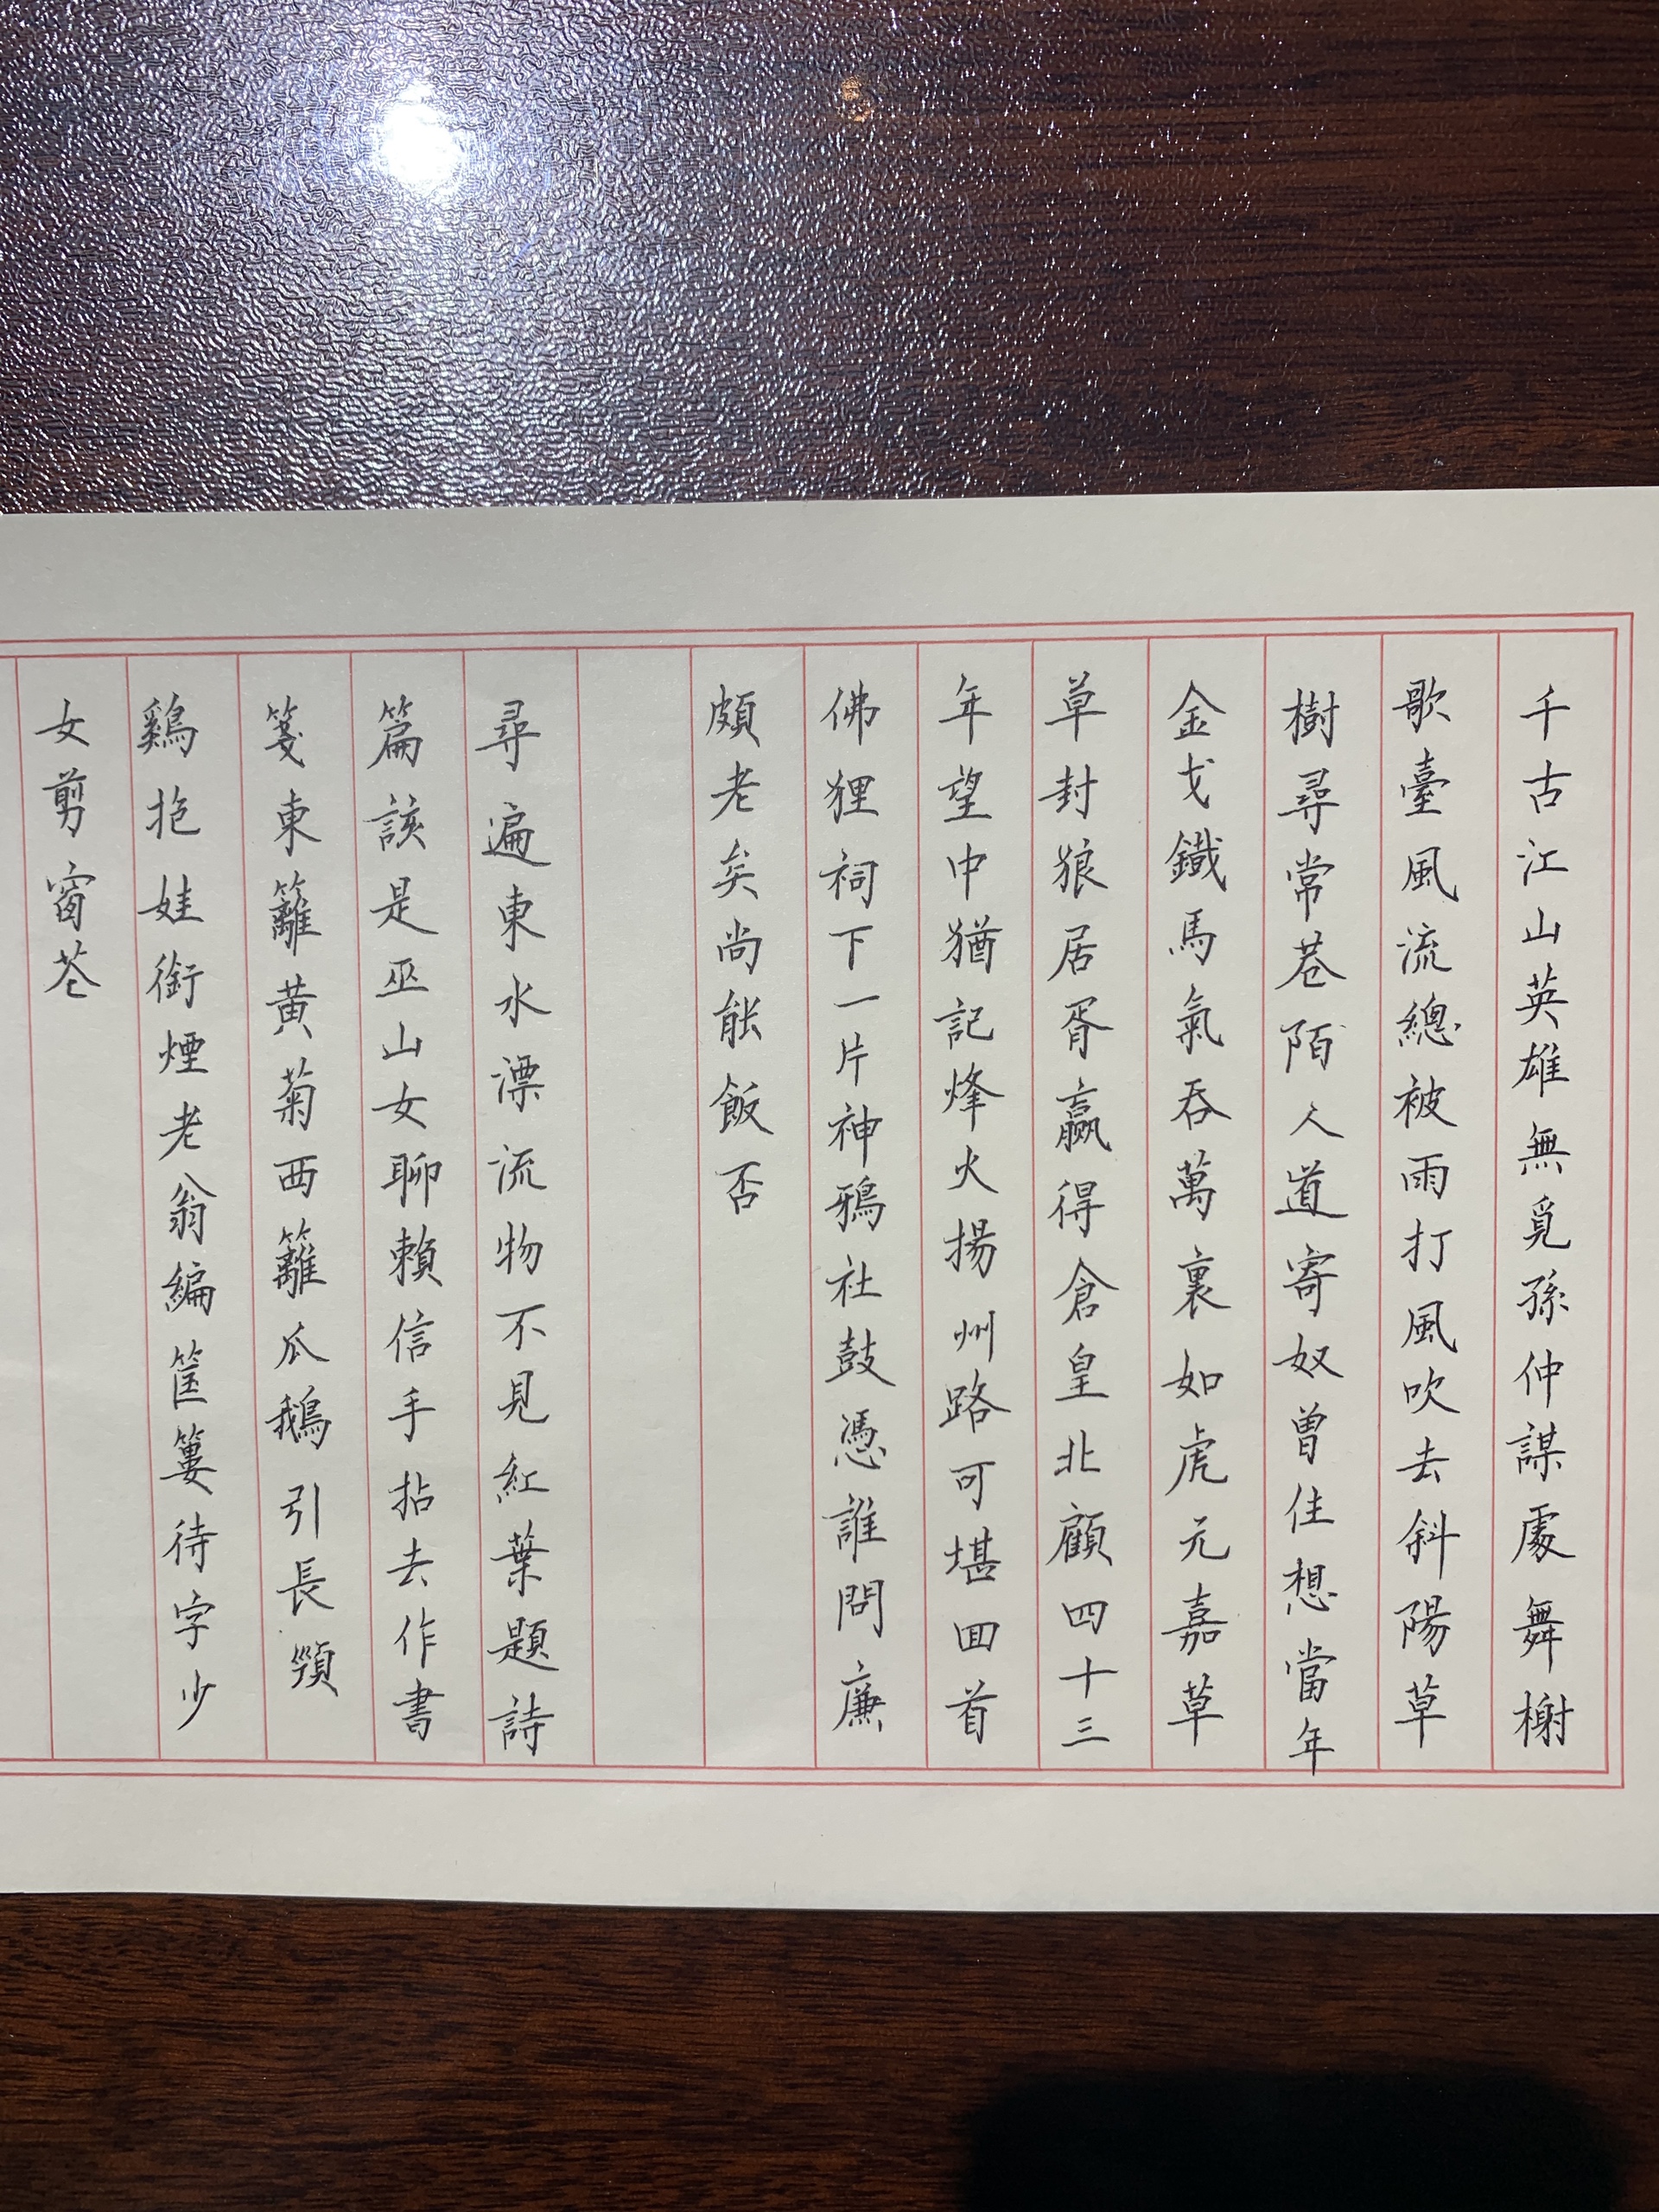 千古江山英雄無覓孫仲謀處舞榭
歌臺風流總被雨打風吹去斜陽草
樹尋常巷陌人道寄奴曾住想當年
金戈鐵馬氣吞萬裏如虎元嘉草
草封狼居胥贏得倉皇北顧四十三
年望中猶記烽火揚州路可堪回首
佛狸祠下一片神鴉社鼓憑誰問廉
頗老矣尚能飯否
尋遍東水漂流物不見紅葉題詩
篇該是巫山女聊賴信手拈去作書
箋東籬黃菊西籬瓜鵝引長頸
鷄抱娃銜煙老翁編筐簍待字少
女剪窗花